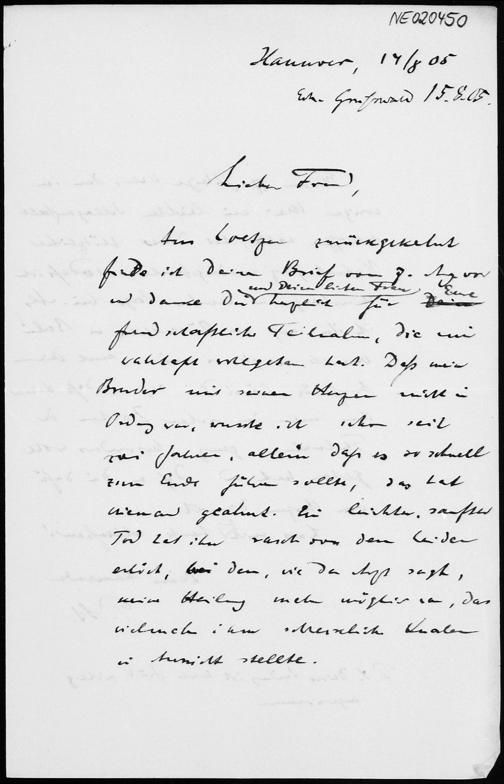 NE020450
Hannover, 14/8 05
Greifswald 15.8.05.
Lieber Freund,
Aus zurückgekehrt
finde ich Deinen Brief vom 7. Aug vor
und Deiner lieben Frau Eure
und danke Dir herzlich für Deine
freundschaftliche Teilnahme, die mir
wahrhaft wohlgetan hat. Daß mein
Bruder mit seinem Herzen nicht in
Ordnung war, wusste ich schon seit
zwei Jahren, allein daß es so schnell
zum Ende führen sollte, das hat
niemand geahnt. Ein leichter, sanfter
Tod hat ihn rasch von dem Leiden
erlöst, bei dem, wie der Arzt sagt,
keine Heilung mehr möglich war, das
vielmehr immer schreckliche Qualen
in Aussicht stellte.